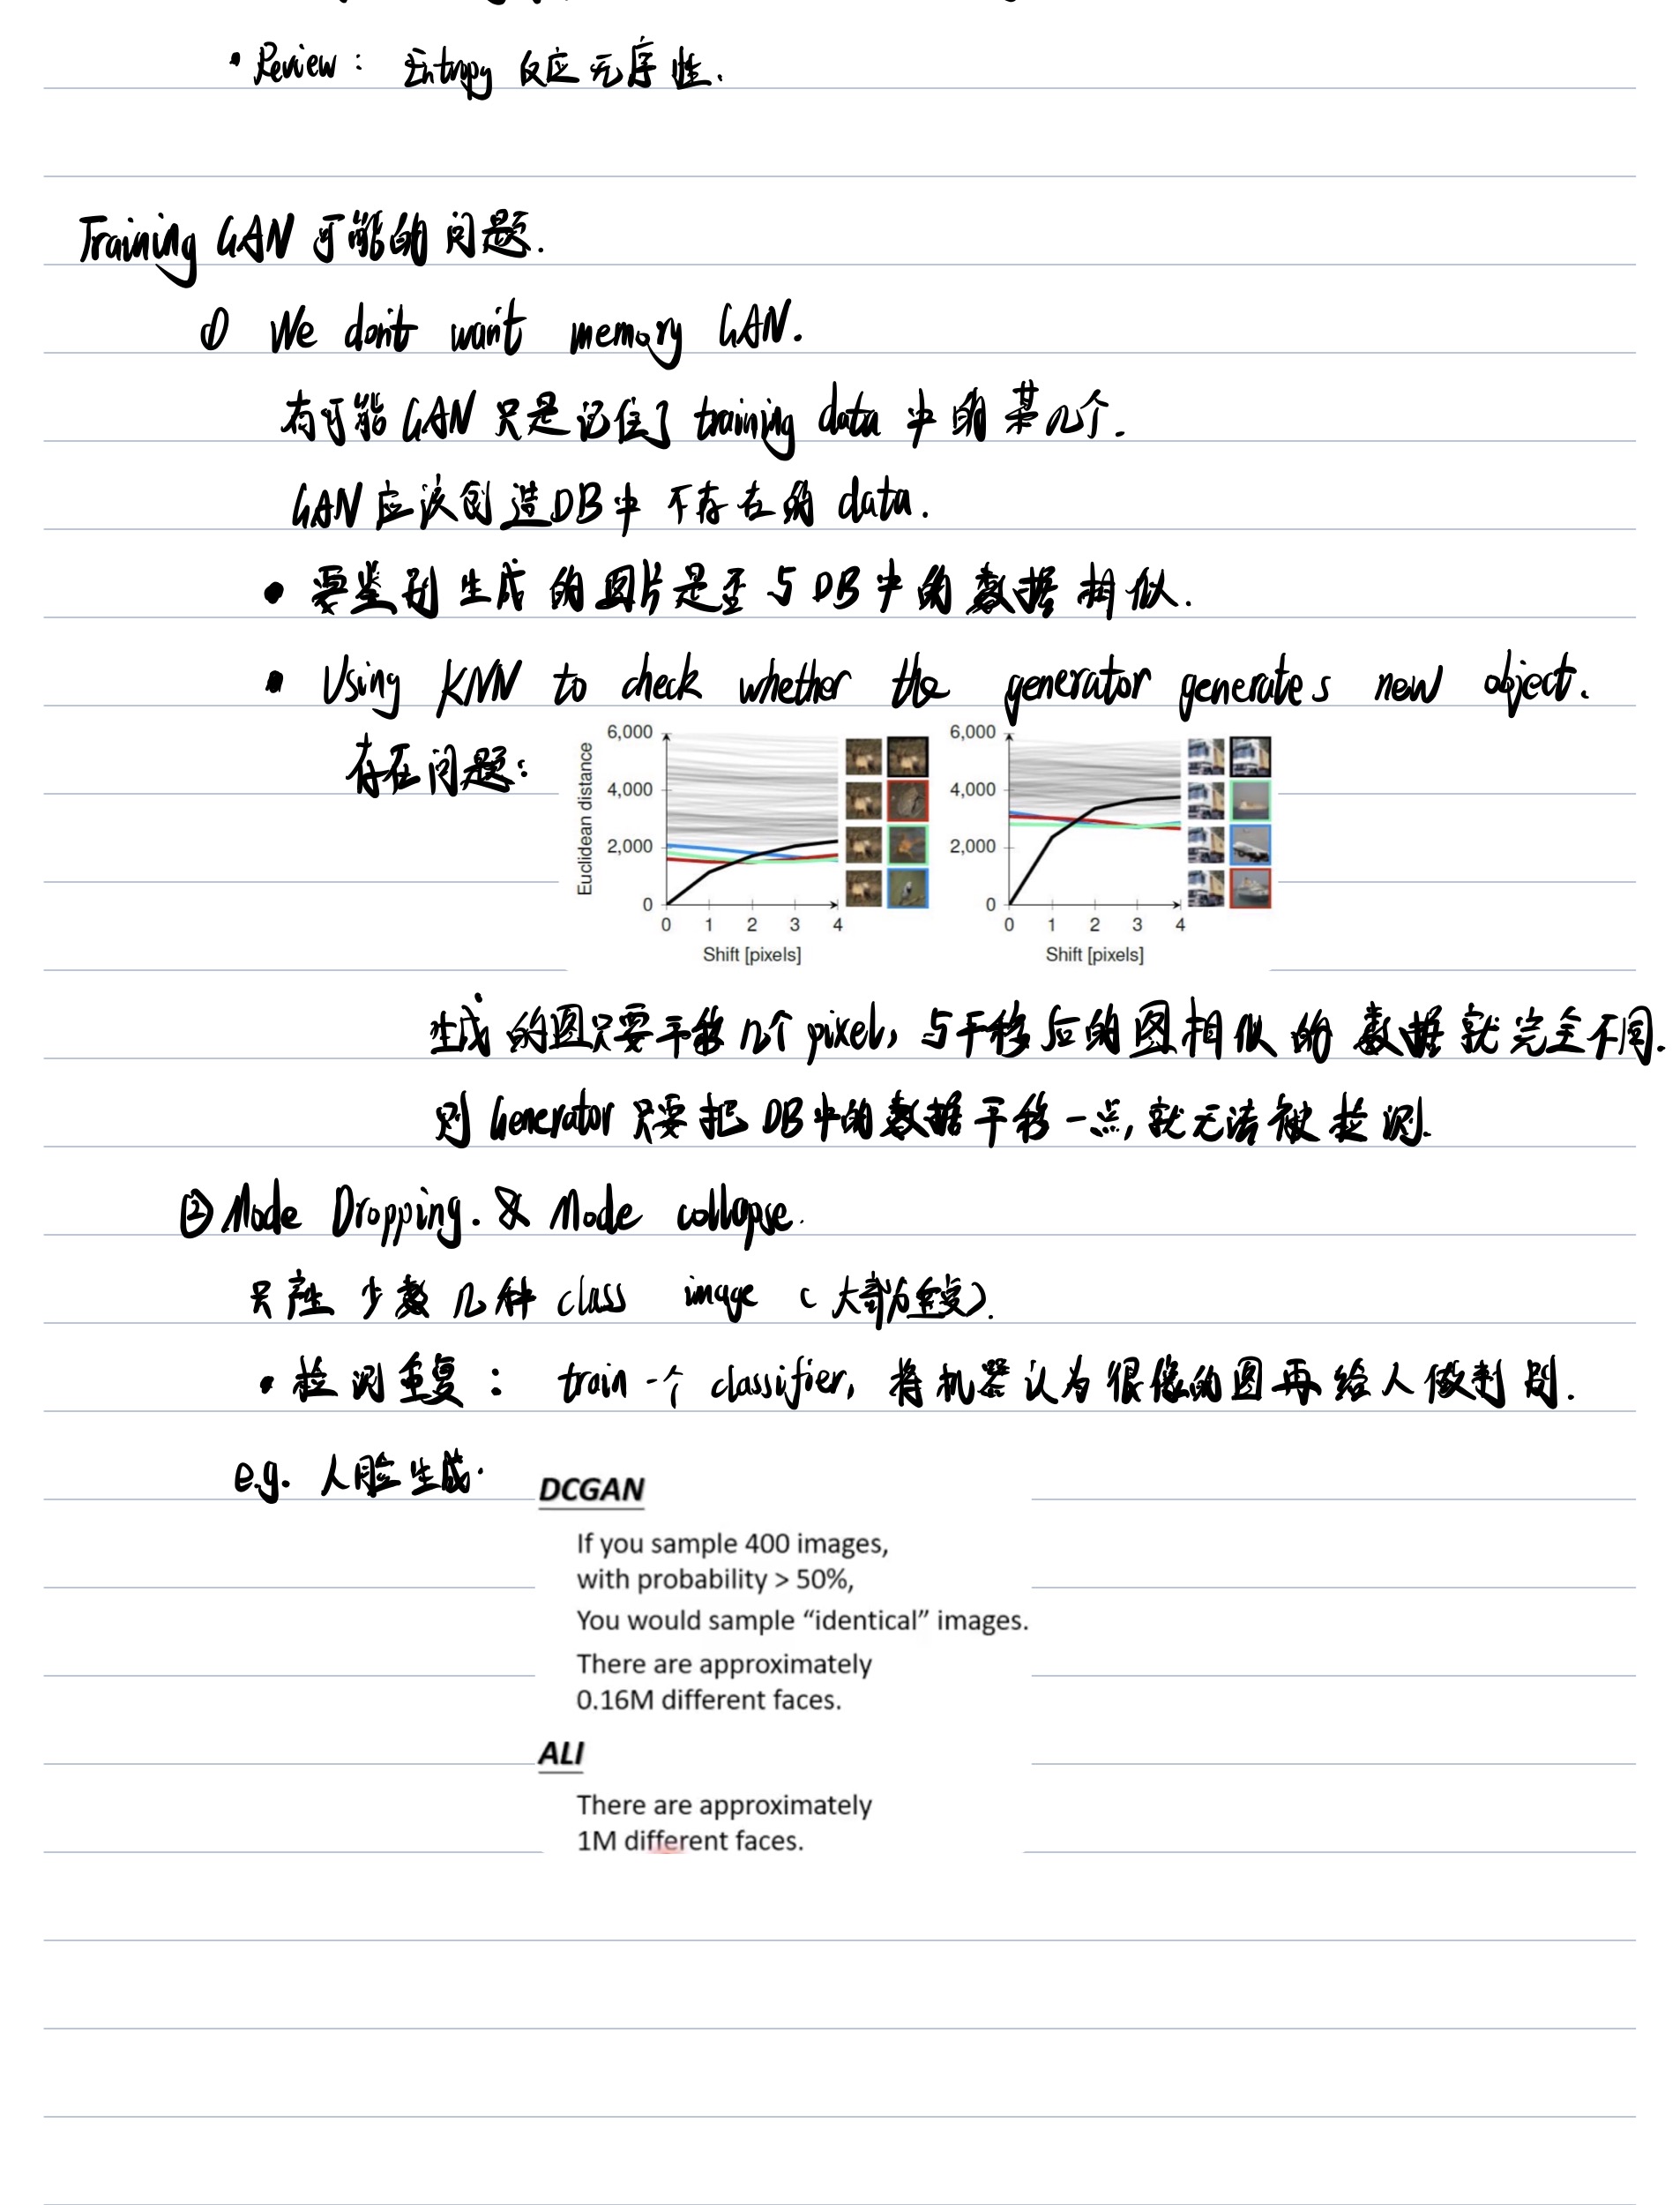 • Review: Entropy 反应无序性.
Training GAN 可能的问题.
① We don't want memory GAN.
有可能 GAN 只是记住了 training data 中的某几个.
GAN 应该创造DB中不存在的 data.
• 要鉴别生成的图片是否与DB中的数据相似.
• Using KNN to check whether the generator generates new object.
存在问题:
Euclidean distance
6,000
4,000
2,000
0
0 1 2 3 4
Shift [pixels]
6,000
4,000
2,000
0
0 1 2 3 4
Shift [pixels]
生成的图只要平移几个 pixel, 与平移后的图相似的数据就完全不同.
则 Generator 只要把 DB中的数据平移一点, 就无法被检测.
② Mode Dropping. & Mode collapse.
只产生少数几种 class image (大部分为重复).
• 检测重复: train 一个 classifier, 将机器认为很像的图再给人做判别.
e.g. 人脸生成.
DCGAN
If you sample 400 images,
with probability > 50%,
You would sample “identical” images.
There are approximately
0.16M different faces.
ALI
There are approximately
1M different faces.